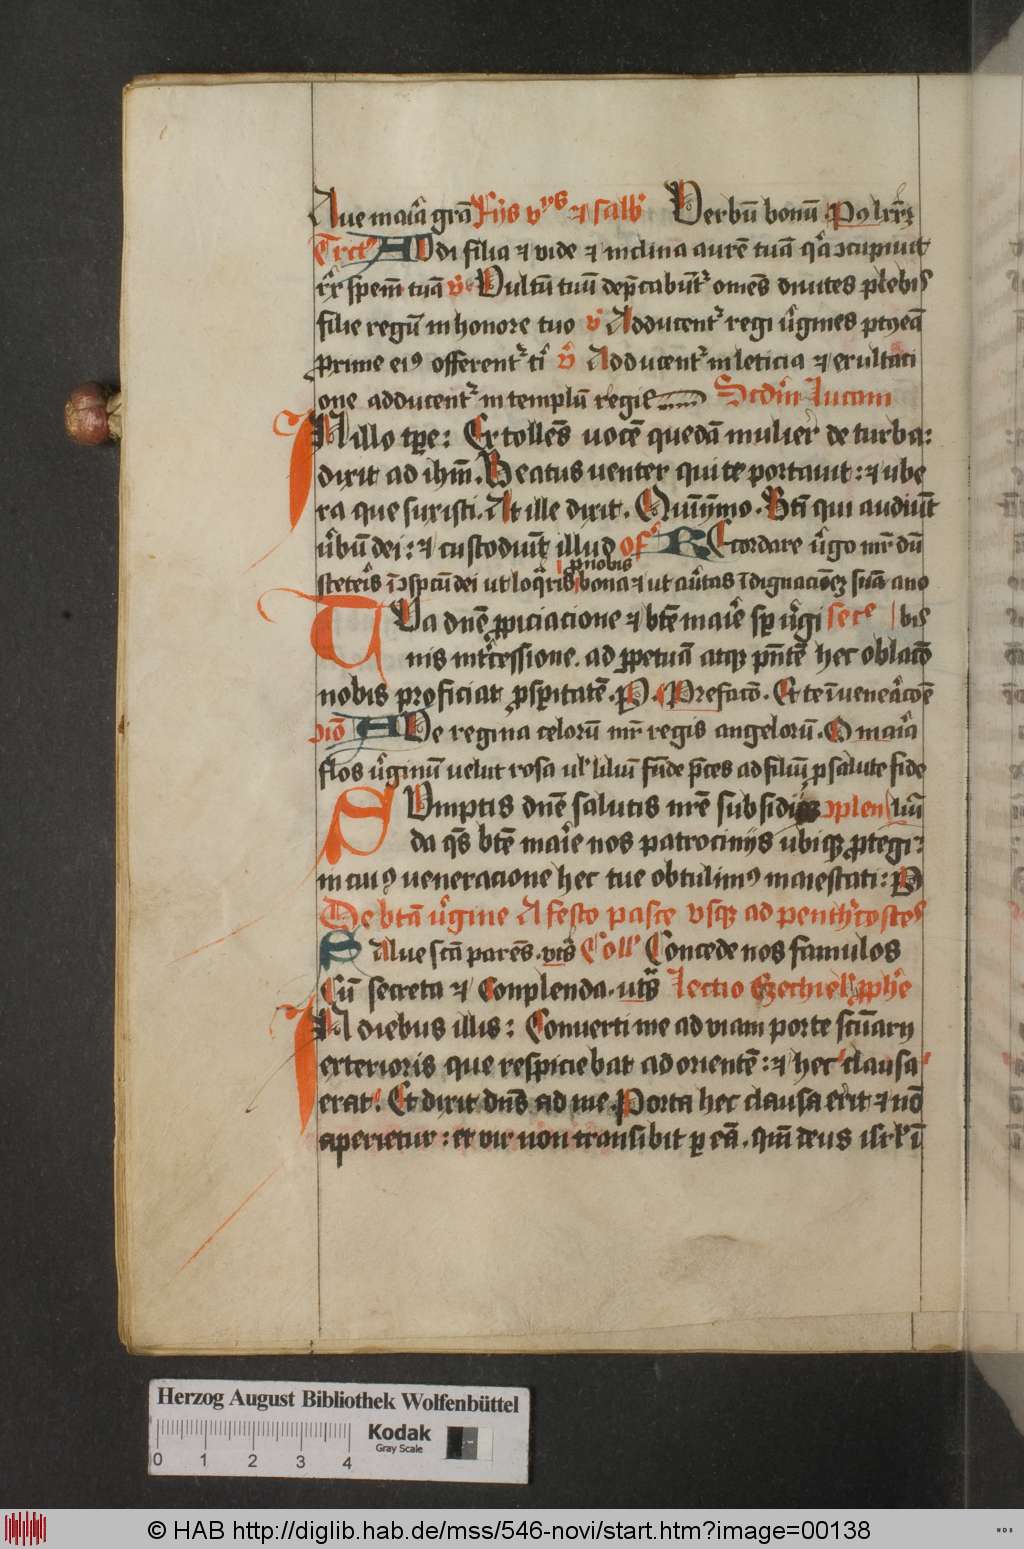 Aue maiã grã Fijs vijs ⁊ salb̾ Verbũ bonũ
Trctꝰ AVdi filia ⁊ vide ⁊ inclina aurẽ tuã qͣ ɔcupiuit
rex spem̃ tuã v̾ Vultũ tuũ dep̃cabũtͬ omẽs diuites plebis
filie regũ in honore tuo v̾ Adducentͬ regi v̾gines
ꝓxime eiꝰ offerentͬ ti v̾ Adducentͬ in leticia ⁊ exultati
one adducentͬ in templũ regis Scdm̃ lucam
IN illo tꝑe: Extollẽs uocẽ quedã mulier de turba:
dixit ad ihm̃. Beatus uenter qui te portauit: ⁊ ube
ra que suxisti. At ille dixit. Quiñymo. Bti̾ qui audiũt
v̾bũ dei: ⁊ custodiũt illud of̾ REcordare v̾go mr̃ dñ
ꝓ nobis
steteris ĩ ɔspcũ dei ut loqͣris bona ⁊ ut au̾tas ĩdignacionẽ suã a no
TVa dñe ꝓpiciacione ⁊ btẽ maiͤ sꝑ v̾gi secͤ bis
nis int̾cessione. ad ꝑpetuã atqꝫ pñtẽ hec oblacõ
nobis proficiat ꝓspitatẽ. P. Prefacõ. Et te ĩ
AVe regina celorũ mr̃ regis angelorũ. O maiã
flos v̾ginũ uelut rosa ul̾ liliũ fũde p̃ces ad filiũ ꝓ salute fide
SVmptis dñe salutis nr̃e subsidijs ɔplen liũ
da qs̃ btẽ maiͤ nos patrocinijs ubiqꝫ ꝓtegi:
in cuiꝰ ueneracione hec tue obtulimꝰ maiestati: P
De btã v̾gine A festo pasce vsqꝫ ad penthecostes
SAlue sctã parẽs. vts̾ Coll̾ Concede nos famulos
Cũ secreta ⁊ Conplenda. uts̾ lectio Ezechiel̾ ꝓph̾e
IN diebus illis: Conuerti me ad viam porte scũary
exterioris que respiciebat ad orientẽ: ⁊ hec clausa
erat. Et dixit dñs ad me. Porta hec clausa erit ⁊ nõ
aperietur: et vir non transibit ꝑ eã. qm̃ deus isrl̾ ĩ
Herzog August Bibliothek Wolfenbüttel
Kodak
Gray Scale
0 1 2 3 4
© HAB http://diglib.hab.de/mss/546-novi/start.htm?image=00138